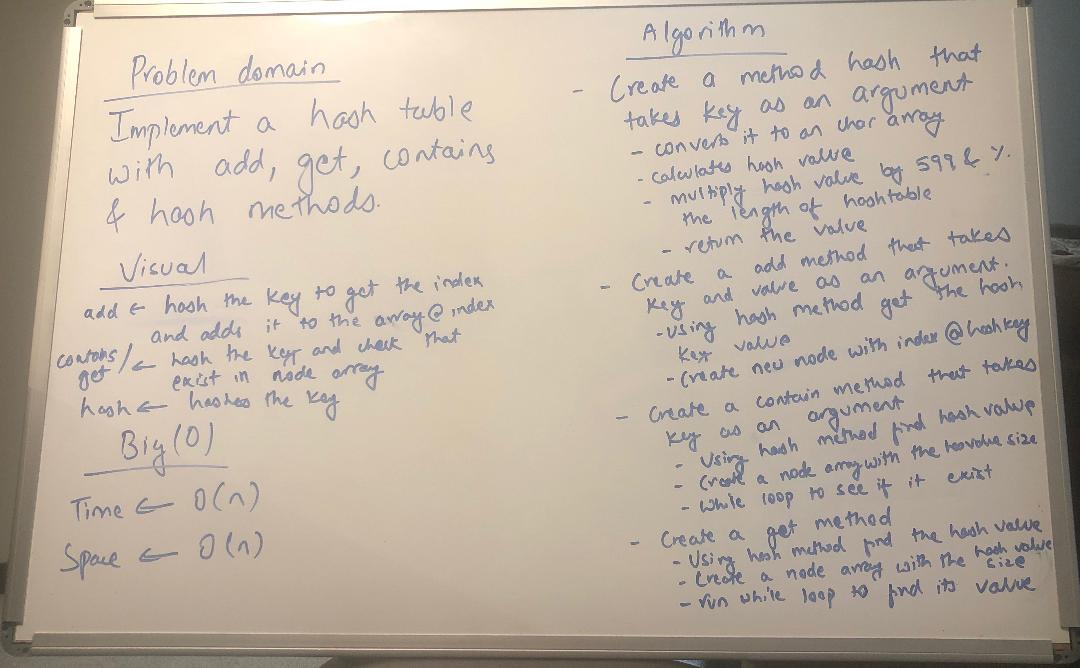 Problem domain
Implement a hash table
with add, get, contains
& hash methods.
Visual
add ← hash the key to get the index
and adds it to the array @ index
contains/
get ← hash the key and check that
exist in node array
hash ← hashes the key
Big (O)
Time ← O(n)
Space ← O(n)
Algorithm
- Create a method hash that
takes key as an argument
- convert it to an char array
- calculates hash value
- multiply hash value by 599 & %
the length of hashtable
- return the value
- Create a add method that takes
key and value as an argument.
- using hash method get the hash
key value
- Create new node with index @ hashkey
- Create a contain method that takes
key as an argument
- Using hash method find hash value
- Create a node array with the size
- while loop to see if it exist
- Create a get method
- Using hash method find the hash value
- Create a node array with the hash value
size
- run while loop to find its value